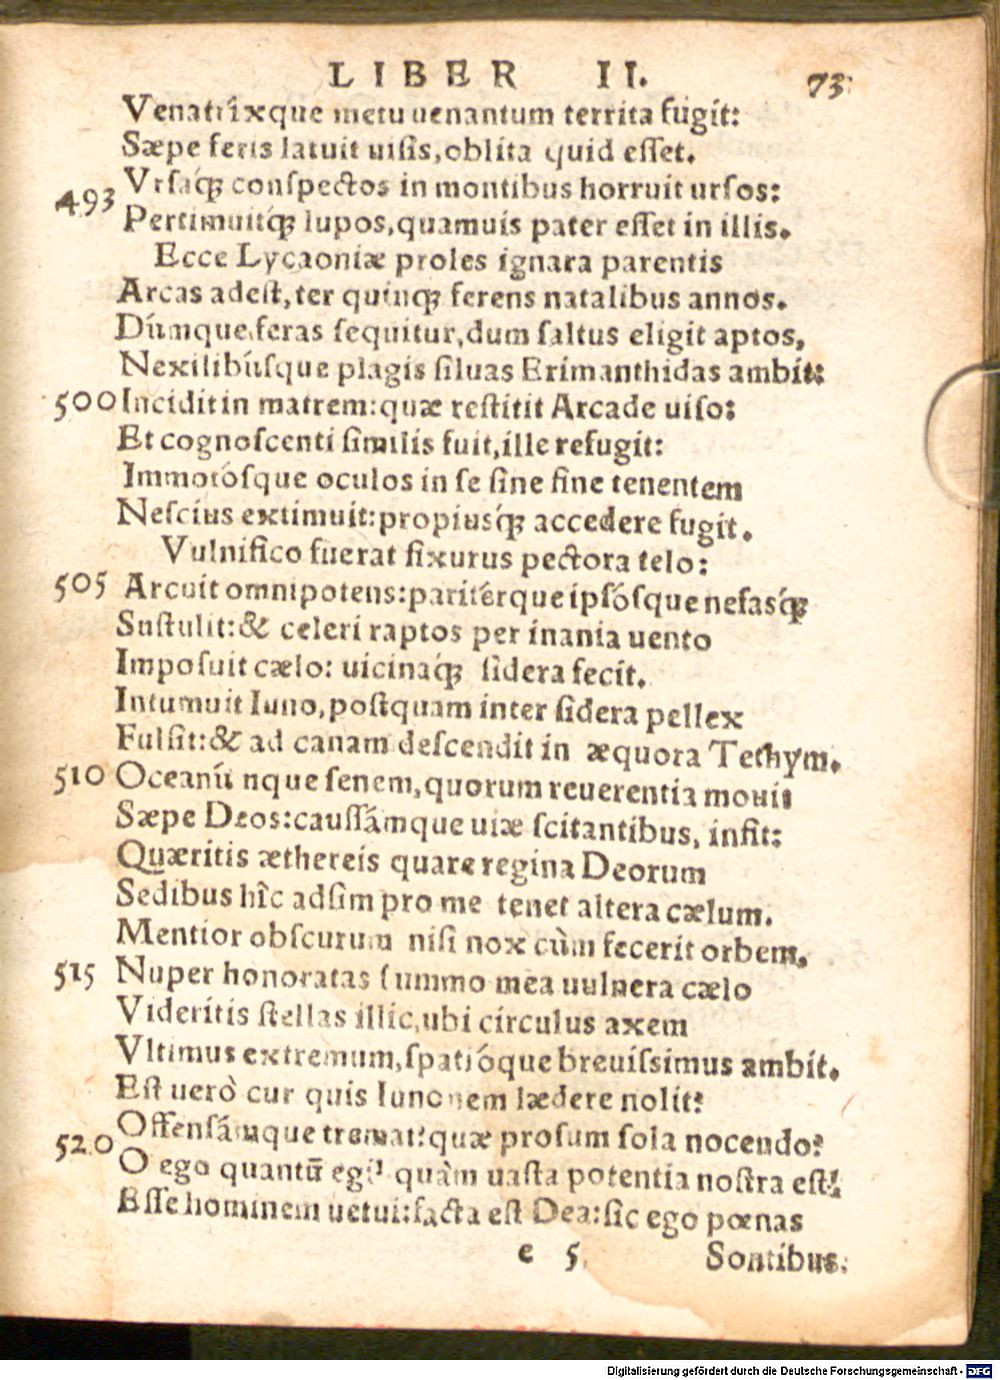 LIBER II. 73
Venatrîxque metu uenantum territa fugit:
Sæpe feris latuit uisis, oblita quid esset.
493 Vrsaq́; conspectos in montibus horruit ursos:
Pertimuitq́; lupos, quamuis pater esset in illis.
Ecce Lycaoniæ proles ignara parentis
Arcas adest, ter quinq; ferens natalibus annos.
Dúmque feras sequitur, dum saltus eligit aptos,
Nexilibúsque plagis siluas Erimanthidas ambit:
500 Incidit in matrem: quæ restitit Arcade uiso:
Et cognoscenti similis fuit, ille refugit:
Immotósque oculos in se sine fine tenentem
Nescius extimuit: propiusq́; accedere fugit.
Vulnifico fuerat fixurus pectora telo:
505 Arcuit omnipotens: paritérque ipsósque nefasq́;
Sustulit: & celeri raptos per inania uento
Imposuit cælo: uicinaq́; sidera fecit.
Intumuit Iuno, postquam inter sidera pellex
Fulsit: & ad canam descendit in æquora Tethym.
510 Oceanú nque senem, quorum reuerentia mouit
Sæpe Deos: caussámque uiæ scitantibus, infit:
Quæritis æthereis quare regina Deorum
Sedibus hîc adsim pro me tenet altera cælum.
Mentior obscurum nisi nox cùm fecerit orbem.
515 Nuper honoratas summo mea uulnera cælo
Videritis stellas illic, ubi circulus axem
Vltimus extremum, spatióque breuissimus ambit.
Est uerò cur quis Iunonem lædere nolit?
Offensámque tremat? quæ prosum sola nocendo?
520 O ego quantū egi! quàm uasta potentia nostra est!
Esse hominem uetui: facta est Dea: sic ego pœnas
e 5 Sontibus.
Digitalisierung gefördert durch die Deutsche Forschungsgemeinschaft - DFG